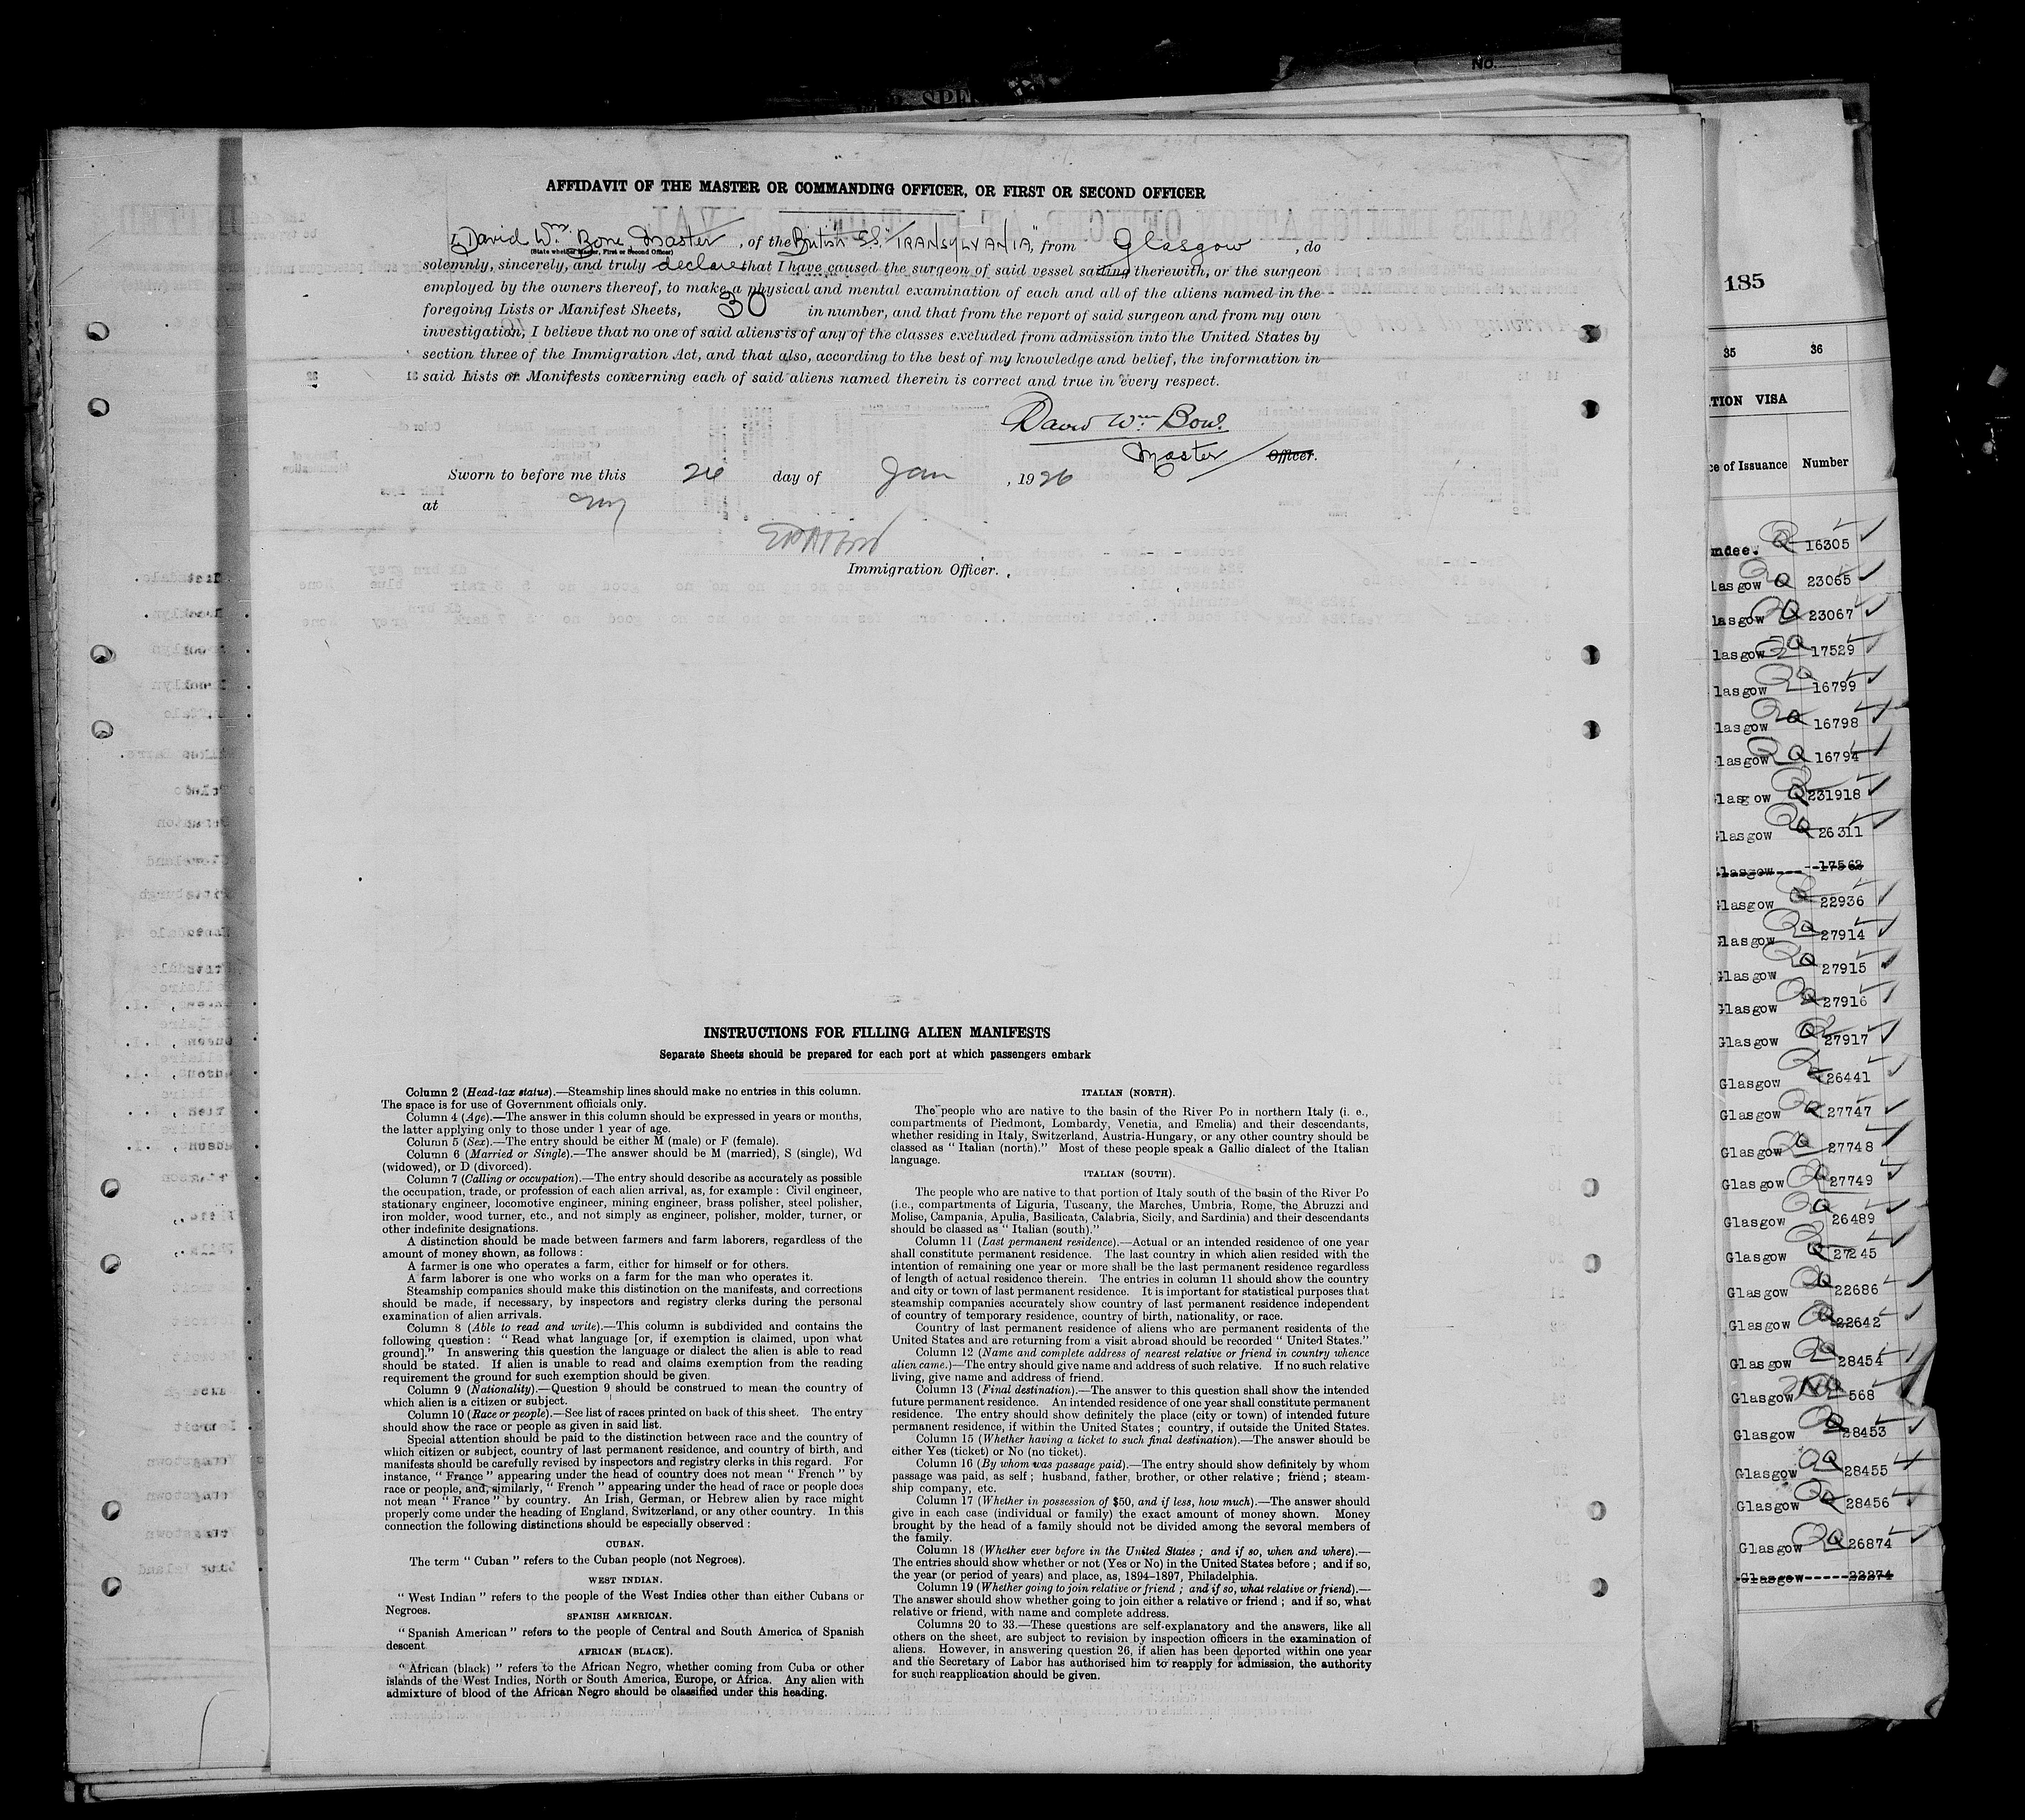 No.
AFFIDAVIT OF THE MASTER OR COMMANDING OFFICER, OR FIRST OR SECOND OFFICER
I, David Wm. Bone, Master, of the British S.S. "TRANSYLVANIA," from Glasgow, do
(State whether Master, First or Second Officer)
solemnly, sincerely, and truly declare that I have caused the surgeon of said vessel sailing therewith, or the surgeon
employed by the owners thereof, to make a physical and mental examination of each and all of the aliens named in the
foregoing Lists or Manifest Sheets, 30 in number, and that from the report of said surgeon and from my own
investigation, I believe that no one of said aliens is of any of the classes excluded from admission into the United States by
section three of the Immigration Act, and that also, according to the best of my knowledge and belief, the information in
said Lists or Manifests concerning each of said aliens named therein is correct and true in every respect.
David Wm Bone
Master Officer.
Sworn to before me this 24 day of Jan, 1926
at
Immigration Officer.
INSTRUCTIONS FOR FILLING ALIEN MANIFESTS
Separate Sheets should be prepared for each port at which passengers embark
Column 2 (Head-tax status).—Steamship lines should make no entries in this column.
The space is for use of Government officials only.
Column 4 (Age).—The answer in this column should be expressed in years or months,
the latter applying only to those under 1 year of age.
Column 5 (Sex).—The entry should be either M (male) or F (female).
Column 6 (Married or Single).—The answer should be M (married), S (single), Wd
(widowed), or D (divorced).
Column 7 (Calling or occupation).—The entry should describe as accurately as possible
the occupation, trade, or profession of each alien arrival, as, for example : Civil engineer,
stationary engineer, locomotive engineer, mining engineer, brass polisher, steel polisher,
iron molder, wood turner, etc., and not simply as engineer, polisher, molder, turner, or
other indefinite designations.
A distinction should be made between farmers and farm laborers, regardless of the
amount of money shown, as follows :
A farmer is one who operates a farm, either for himself or for others.
A farm laborer is one who works on a farm for the man who operates it.
Steamship companies should make this distinction on the manifests, and corrections
should be made, if necessary, by inspectors and registry clerks during the personal
examination of alien arrivals.
Column 8 (Able to read and write).—This column is subdivided and contains the
following question : " Read what language [or, if exemption is claimed, upon what
ground]." In answering this question the language or dialect the alien is able to read
should be stated. If alien is unable to read and claims exemption from the reading
requirement the ground for such exemption should be given.
Column 9 (Nationality).—Question 9 should be construed to mean the country of
which alien is a citizen or subject.
Column 10 (Race or people).—See list of races printed on back of this sheet. The entry
should show the race or people as given in said list.
Special attention should be paid to the distinction between race and the country of
which citizen or subject, country of last permanent residence, and country of birth, and
manifests should be carefully revised by inspectors and registry clerks in this regard. For
instance, " France " appearing under the head of country does not mean " French " by
race or people, and, similarly, " French " appearing under the head of race or people does
not mean " France " by country. An Irish, German, or Hebrew alien by race might
properly come under the heading of England, Switzerland, or any other country. In this
connection the following distinctions should be especially observed :
CUBAN.
The term " Cuban " refers to the Cuban people (not Negroes).
WEST INDIAN.
" West Indian " refers to the people of the West Indies other than either Cubans or
Negroes.
SPANISH AMERICAN.
" Spanish American " refers to the people of Central and South America of Spanish
descent
AFRICAN (BLACK).
" African (black) " refers to the African Negro, whether coming from Cuba or other
islands of the West Indies, North or South America, Europe, or Africa. Any alien with
admixture of blood of the African Negro should be classified under this heading.
ITALIAN (NORTH).
The people who are native to the basin of the River Po in northern Italy (i. e.,
compartments of Piedmont, Lombardy, Venetia, and Emelia) and their descendants,
whether residing in Italy, Switzerland, Austria-Hungary, or any other country should be
classed as " Italian (north)." Most of these people speak a Gallic dialect of the Italian
language.
ITALIAN (SOUTH).
The people who are native to that portion of Italy south of the basin of the River Po
(i.e., compartments of Liguria, Tuscany, the Marches, Umbria, Rome, the Abruzzi and
Molise, Campania, Apulia, Basilicata, Calabria, Sicily, and Sardinia) and their descendants
should be classed as " Italian (south)."
Column 11 (Last permanent residence).—Actual or an intended residence of one year
shall constitute permanent residence. The last country in which alien resided with the
intention of remaining one year or more shall be the last permanent residence regardless
of length of actual residence therein. The entries in column 11 should show the country
and city or town of last permanent residence. It is important for statistical purposes that
steamship companies accurately show country of last permanent residence independent
of country of temporary residence, country of birth, nationality, or race.
Country of last permanent residence of aliens who are permanent residents of the
United States and are returning from a visit abroad should be recorded " United States."
Column 12 (Name and complete address of nearest relative or friend in country whence
alien came.)—The entry should give name and address of such relative. If no such relative
living, give name and address of friend.
Column 13 (Final destination).—The answer to this question shall show the intended
future permanent residence. An intended residence of one year shall constitute permanent
residence. The entry should show definitely the place (city or town) of intended future
permanent residence, if within the United States ; country, if outside the United States.
Column 15 (Whether having a ticket to such final destination).—The answer should be
either Yes (ticket) or No (no ticket).
Column 16 (By whom was passage paid).—The entry should show definitely by whom
passage was paid, as self ; husband, father, brother, or other relative ; friend ; steam-
ship company, etc.
Column 17 (Whether in possession of $50, and if less, how much).—The answer should
give in each case (individual or family) the exact amount of money shown. Money
brought by the head of a family should not be divided among the several members of
the family.
Column 18 (Whether ever before in the United States ; and if so, when and where).—
The entries should show whether or not (Yes or No) in the United States before ; and if so,
the year (or period of years) and place, as, 1894-1897, Philadelphia.
Column 19 (Whether going to join relative or friend ; and if so, what relative or friend).—
The answer should show whether going to join either a relative or friend ; and if so, what
relative or friend, with name and complete address.
Columns 20 to 33.—These questions are self-explanatory and the answers, like all
others on the sheet, are subject to revision by inspection officers in the examination of
aliens. However, in answering question 26, if alien has been deported within one year
and the Secretary of Labor has authorised him to reapply for admission, the authority
for such reapplication should be given.
185
35 36
TION VISA
ce of Issuance Number
ndee. Q 16305
lasgow Q 23065
lasgow Q 23067
lasgow Q 17529
lasgow Q 16799
lasgow Q 16798
lasgow Q 16794
lasgow Q 231918
lasgow Q 26311
Glasgow 17562
Glasgow Q 22936
Glasgow Q 27914
Glasgow Q 27915
Glasgow Q 27916
Glasgow Q 27917
Glasgow Q 26441
Glasgow Q 27747
Glasgow Q 27748
Glasgow Q 27749
Glasgow Q 26489
Glasgow Q 27245
Glasgow Q 22686
Glasgow Q 22642
Glasgow Q 28454
Glasgow NQ 568
Glasgow Q 28453
Glasgow Q 28455
Glasgow Q 28456
Glasgow Q 26874
Glasgow 22274